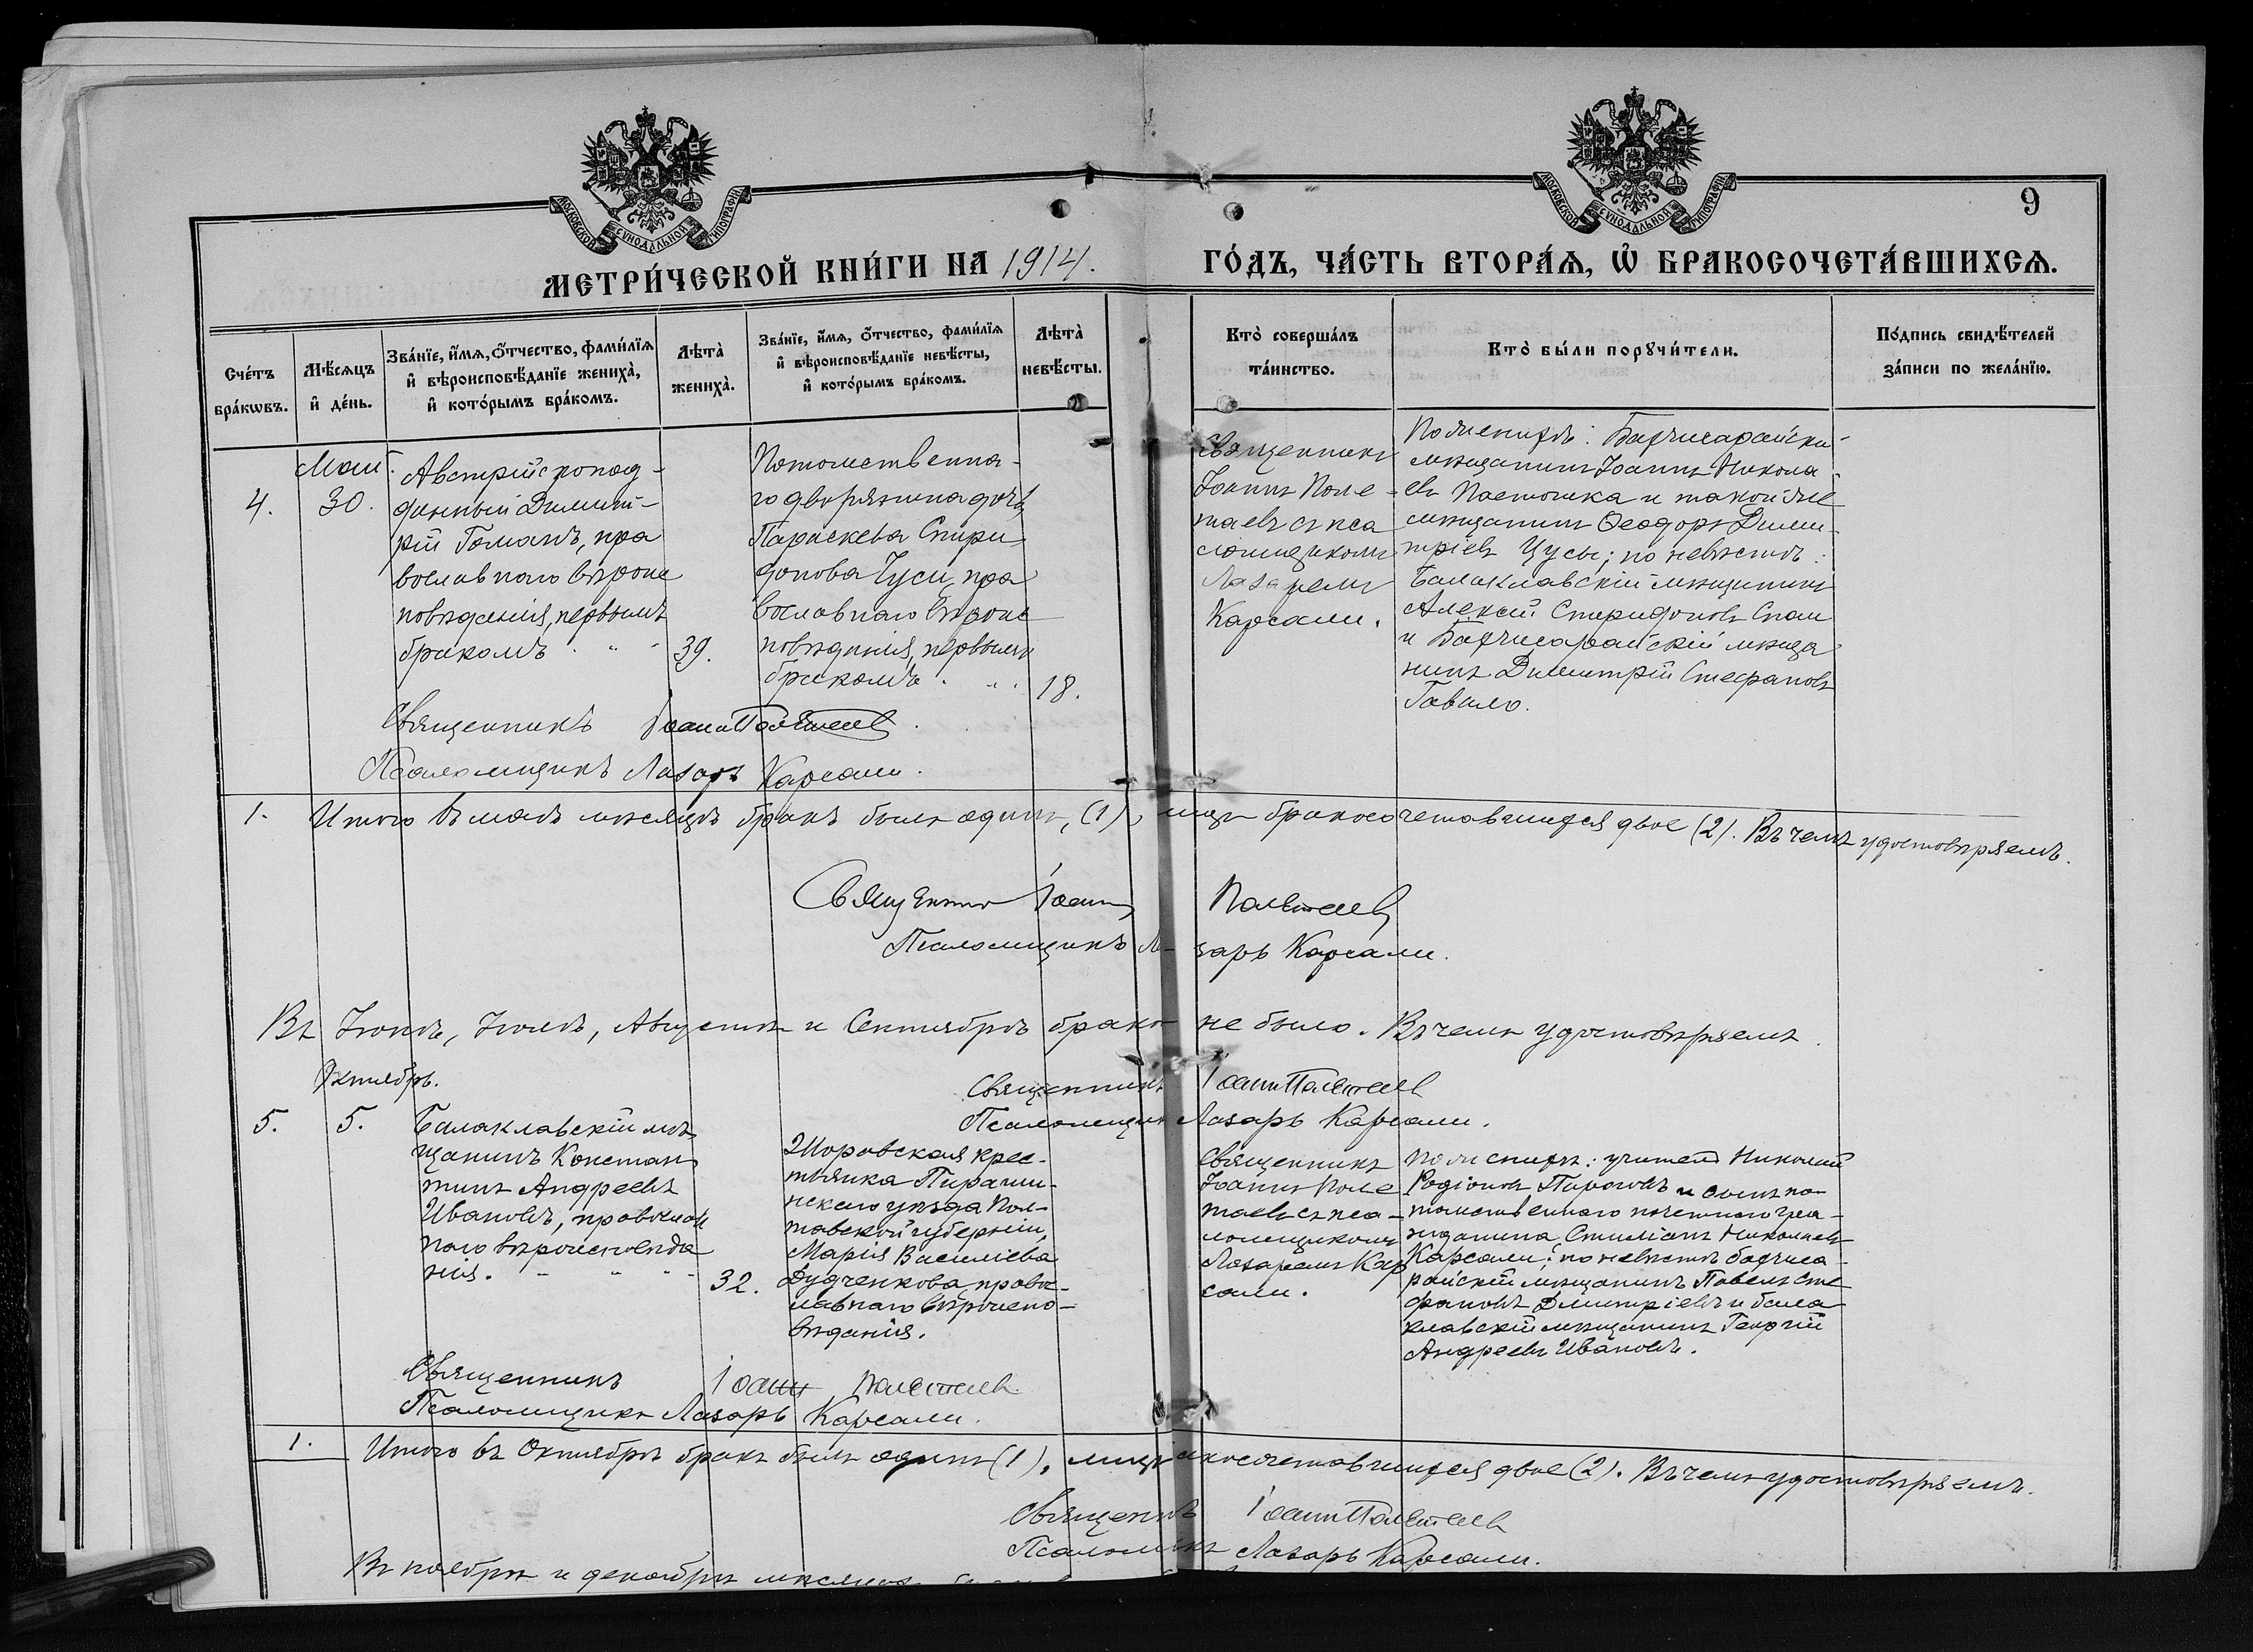 МОСКОВСКОЙ СѴНОДАЛЬНОЙ ТИПОГРАФІИ
МОСКОВСКОЙ СѴНОДАЛЬНОЙ ТИПОГРАФІИ
9
МЕТРИ́ЧЕСКОЙ КНИ́ГИ НА 1914.
ГО́ДЪ, ЧА́СТЬ ВТОРА́Ѧ, Ѽ БРАКОСОЧЕТА́ВШИХСѦ.
Сче́тъ
бра́кѡвъ.
Мѣ́сѧцъ
и҆ де́нь.
Зва́нїе, и҆́мѧ, ѻ҆́тчество, фами́лїѧ
и҆ вѣроисповѣ́данїе жениха̀,
и҆ кото́рымъ бра́комъ.
Лѣта̀
жениха̀.
Зва́нїе, и҆́мѧ, ѻ҆́тчество, фами́лїѧ
и҆ вѣроисповѣ́данїе невѣ́сты,
и҆ кото́рымъ бра́комъ.
Лѣта̀
невѣ́сты.
Кто̀ соверша́лъ
та́инство.
Кто̀ бы́ли порꙋчи́тели.
По́дпись свидѣ́телей
за́писи по жела́нїю.
4.
Май.
30.
Австрійскопод-
данный Димит-
рій Гоманъ, пра
вославнаго вѣроис
повѣданія, первымъ
бракомъ
39.
Потомственна-
го дворянина дочь
Параскева Спири
донова Чуси, пра
вославнаго вѣроис
повѣданія, первымъ
бракомъ
18.
Священникъ
Іоаннъ Поле-
таевъ съ пса
ломщикомъ
Лазаремъ
Карсали.
По женихѣ: Бахчисарайскій
мѣщанинъ Іоаннъ Никола-
евъ и такой же
мѣщанинъ Ѳеодоръ Дими-
тріевъ Цусы; по невѣстѣ:
Балаклавскій мѣщанинъ
Алексѣй Спиридоновъ
и Бахчисарайскій мѣща
нинъ Димитрій Стефановъ
Гавало.
Священникъ Іоаннъ Полетаевъ
Псаломщикъ Лазарь Карсали.
1. Итого въ маѣ мѣсяцѣ бракъ былъ одинъ, (1), лицъ бракосочетавшихся двое (2). Въ чемъ удостовѣряемъ.
Священникъ Іоаннъ Полетаевъ
Псаломщикъ Лазарь Карсали.
Въ Іюнѣ, Іюлѣ, Августѣ и Сентябрѣ браковъ не было. Въ чемъ удостовѣряемъ.
Священникъ Іоаннъ Полетаевъ
Псаломщикъ Лазарь Карсали.
Октябрь.
5.
5.
Балаклавскій мѣ
щанинъ Констан
тинъ Андреевъ
Ивановъ, православ
наго вѣроисповѣда
нія.
32.
крес-
тьянка Пирятин-
скаго уѣзда Пол-
тавской губерніи,
Марія Василіева
Дудченкова, правос-
лавнаго вѣроиспо-
вѣданія.
Священникъ
Іоаннъ Поле
таевъ съ пса-
ломщикомъ
Лазаремъ Кар
сали.
По женихѣ: учитель Николай
Родіоновъ Пироговъ и сынъ по-
томственнаго почетнаго гра-
жданина Николаевъ
Карсали; по невѣстѣ бахчиса-
райскій мѣщанинъ Павелъ Сте
фановъ Димитріевъ и бала
клавскій мѣщанинъ Георгій
Андреевъ Ивановъ.
Священникъ Іоаннъ Полетаевъ.
Псаломщикъ Лазарь Карсали.
1. Итого въ Октябрѣ бракъ былъ одинъ (1), лицъ бракосочетавшихся двое (2). Въ чемъ удостовѣряемъ.
Священникъ Іоаннъ Полетаевъ
Псаломщикъ Лазарь Карсали.
Въ ноябрѣ и декабрѣ мѣсяцахъ